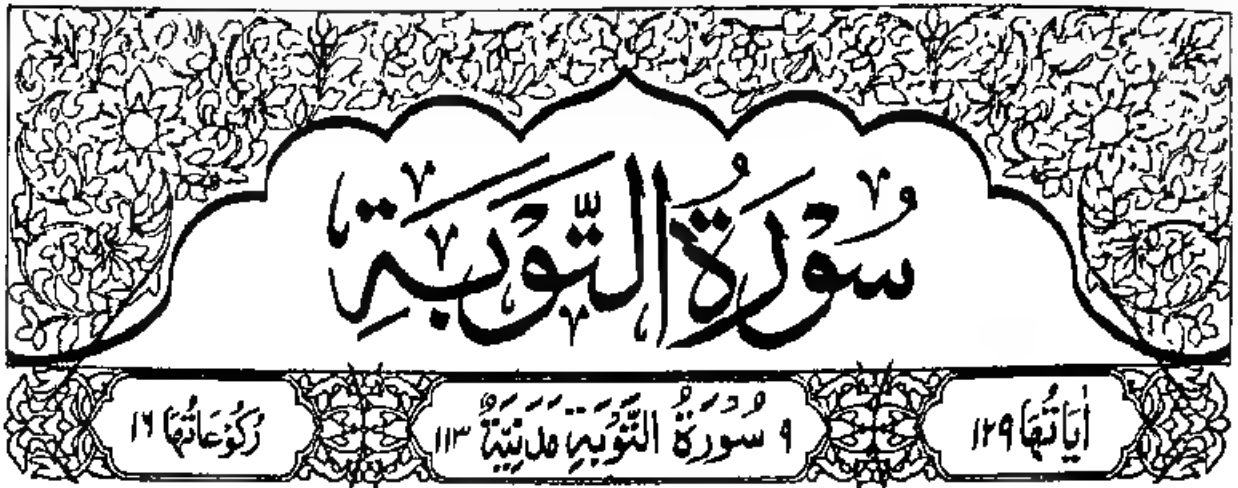 سُوْرَةُ التَّوْبَةِ
اٰيَاتُهَا ١٢٩
٩ سُوْرَةُ التَّوْبَةِ مَدَنِيَّةٌ ١١٣
رُكُوْعَاتُهَا ١٦